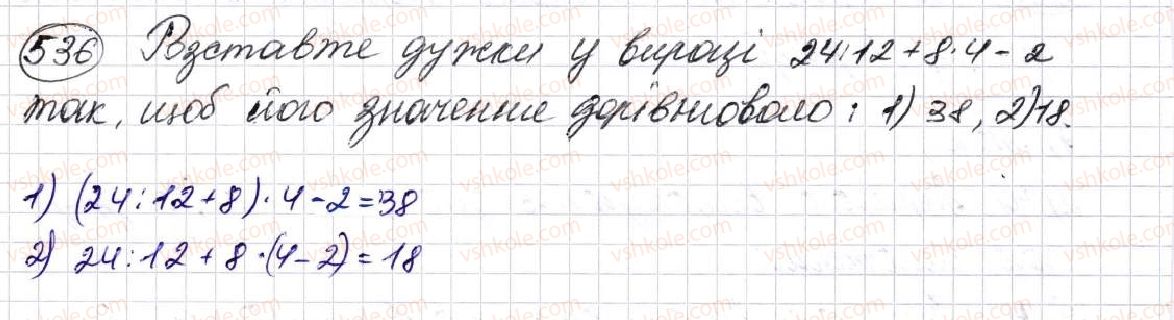 536 Розставте дужки у виразі 24:12+8·4-2
так, щоб його значення дорівнювало: 1) 38, 2) 18.
1) (24:12+8)·4-2=38
2) 24:12+8·(4-2)=18